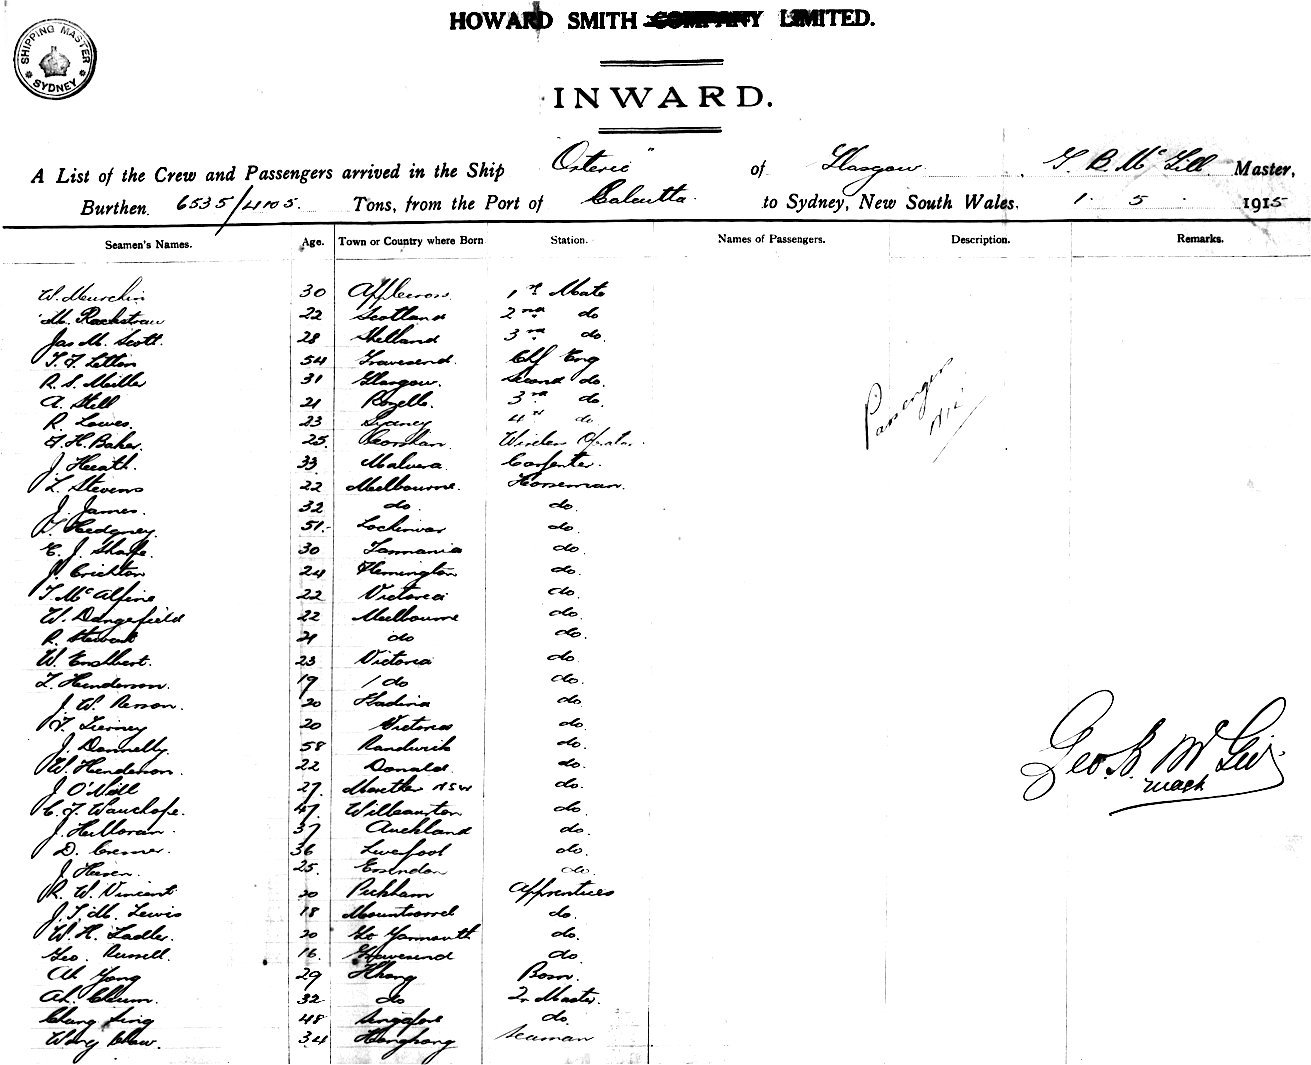 HOWARD SMITH COMPANY LIMITED.
SHIPPING MASTER SYDNEY
INWARD.
A List of the Crew and Passengers arrived in the Ship "Osteric" of Glasgow, G. B. McGill Master,
Burthen 6535/4105. Tons, from the Port of Calcutta to Sydney, New South Wales, 1. 5. 1915
Seamen's Names. Age. Town or Country where Born Station. Names of Passengers. Description. Remarks.
W. Meurchin 30 Applecross 1st Mate
M. Rackstraw 22 Scotland 2nd do
Jas M. Scott. 28 Shetland 3rd do.
54 Gravesend. Chf Eng
R. S. Miller 31 Glasgow. Second do.
A. Still 21 Rozelle. 3rd do.
R. Lowes. 23 Sydney 4th do
F. H. Baker. 25 Wireless Operator.
J. Heath. 33 Malvern. Carpenter.
L. Stevens 22 Melbourne. Horseman.
J. James. 32 do. do.
Hedgney. 51. Lochinvar do.
E. J. Sharpe. 30 Tasmania do.
J. Crichton 24 Flemington do.
T. McAlpine 22 Victoria do.
W. Dangefield 22 Melbourne do.
R. Stewart 21 do do.
W. Enslbert. 23 Victoria do.
L. Henderson. 19 do do.
J. W. Person. 20 do.
F. Tierney 20 Victoria do.
J. Donnelly. 58 Randwick do.
W. Henderson. 22 Donald. do.
J. O'Neill 27. NSW do.
C. F. Wauchope. 47. Williamston do.
J. Hilloran. 37 Auckland do.
D. Cremer. 36 Liverpool do.
J. Heren. 25. Essendon do.
R. W. Vincent 20 Peckham Apprentices
J. T. M. Lewis 18 Mountsorrel do.
W. H. Ladler. 20 Gt Yarmouth do.
Geo. Russell. 16 Gravesend do
Ah Yong 29 HKong Bosn.
Ah Chum. 32 do Qr Master.
Chang Sing 48 Singapore do.
Wong Chaw. 34 Hongkong Seaman
Passengers
Nil
Geo. B. McGill
Mast